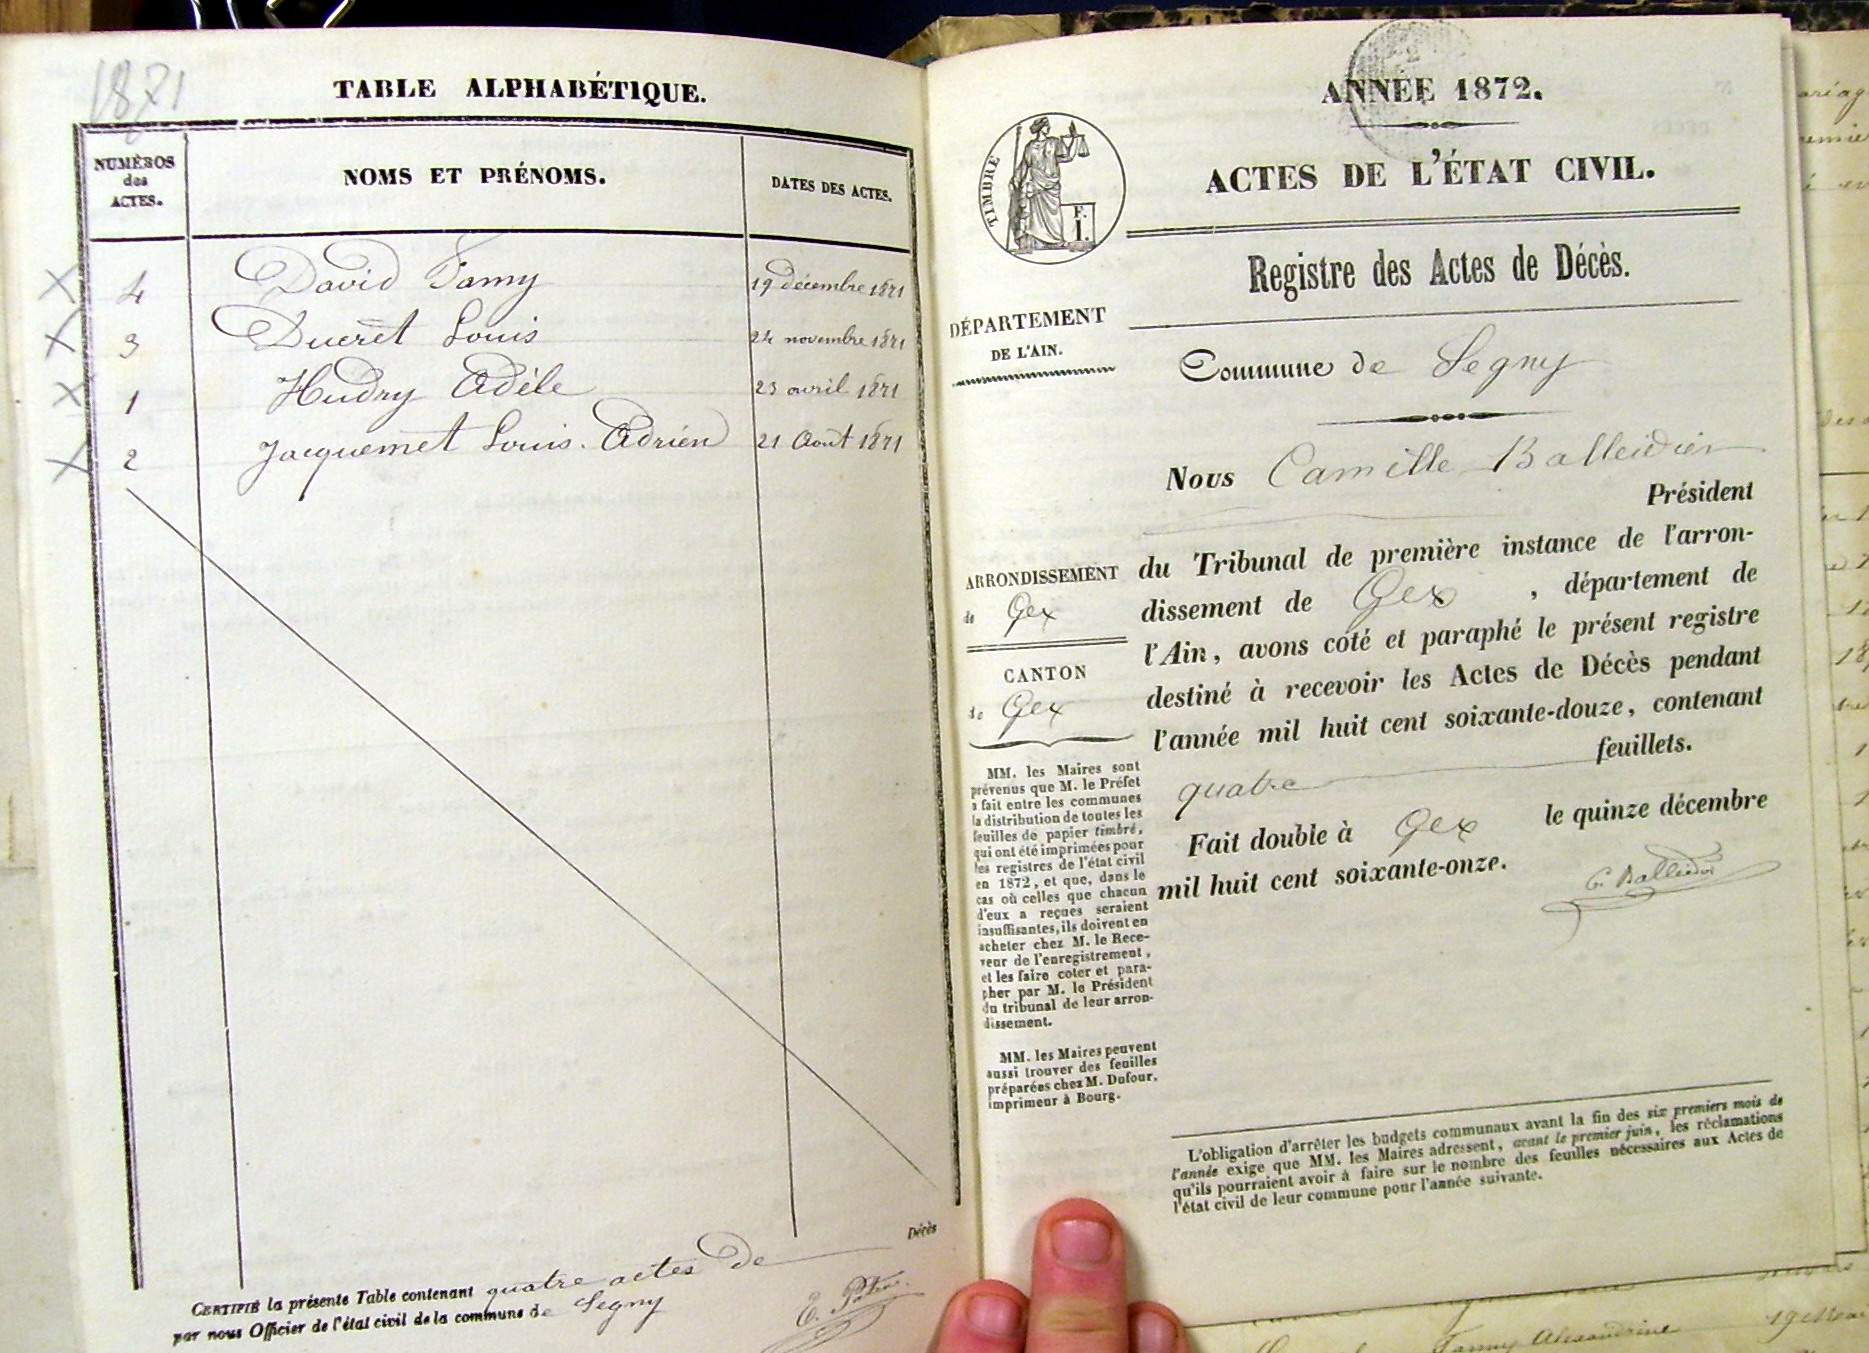 1871
TABLE ALPHABÉTIQUE.
NUMÉROS
des
ACTES.
NOMS ET PRÉNOMS.
DATES DES ACTES.
4 David Famy 19 décembre 1871
3 Ducret Louis 24 novembre 1871
1 Hudry Adèle 23 avril 1871
2 Jacquemet Louis. Adrien 21 Aout 1871
Décès
CERTIFIÉ la présente Table contenant quatre actes de
par nous Officier de l'état civil de la commune de Segny
ANNÉE 1872.
ACTES DE L'ÉTAT CIVIL.
TIMBRE
F.
1.
Registre des Actes de Décès.
DÉPARTEMENT
DE L'AIN.
Commune de Segny
Nous Camille Balleidier
Président
ARRONDISSEMENT
de Gex
CANTON
de Gex
du Tribunal de première instance de l'arron-
dissement de Gex, département de
l'Ain, avons coté et paraphé le présent registre
destiné à recevoir les Actes de Décès pendant
l'année mil huit cent soixante-douze, contenant
quatre feuillets.
Fait double à Gex le quinze décembre
mil huit cent soixante-onze.
C. Balleidier
MM. les Maires sont
prévenus que M. le Préfet
a fait entre les communes
la distribution de toutes les
feuilles de papier timbré,
qui ont été imprimées pour
les registres de l'état civil
en 1872, et que, dans le
cas où celles que chacun
d'eux a reçues seraient
insuffisantes, ils doivent en
acheter chez M. le Rece-
veur de l'enregistrement,
et les faire coter et para-
pher par M. le Président
du tribunal de leur arron-
dissement.
MM. les Maires peuvent
aussi trouver des feuilles
préparées chez M. Dufour,
imprimeur à Bourg.
L'obligation d'arrêter les budgets communaux avant la fin des six premiers mois de
l'année exige que MM. les Maires adressent, avant le premier juin, les réclamations
qu'ils pourraient avoir à faire sur le nombre des feuilles nécessaires aux Actes de
l'état civil de leur commune pour l'année suivante.